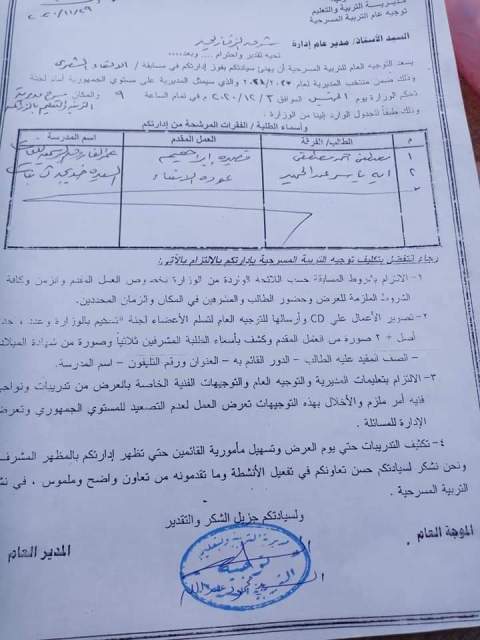 مديرية التربية والتعليم
توجيه عام التربية المسرحية
السيد الأستاذ/ مدير عام إدارة / شرق الزقازيق
تحيه تقدير وإحترام .... وبعد....
يسعد التوجيه العام للتربية المسرحية أن يهنئ سيادتكم بفوز إدارتكم في مسابقة /
وذلك ضمن منتخب المديرية لعام والذي سيمثل المديرية علي مستوي الجمهورية أمام لجنة
تحكيم الوزارة يوم الخميس الموافق ٢٠٢٠/١٢/٣ م في تمام الساعة ٩ والمكان مسرح مديرية
وذلك طبقاً للجدول الوارد إلينا من الوزارة .
التربية والتعليم بالزقازيق
وأسماء الطلبة / الفقرات المرشحة من إدارتكم
م الطالب/ الفرقة العمل المقدم اسم المدرسة
١ مصطفى مصطفى قصيدة إبراهيم
٢ آيه ياسر عبد الحميد عودة السيدة خديجة ث بنات
رجاء التفضل بتكليف توجيه التربية المسرحية بإدارتكم بالالتزام بالآتي:
١- الالتزام بشروط المسابقة حسب اللائحة الواردة من الوزارة بخصوص العمل المقدم والزمن وكافة
الشروط الملزمة للعرض وحضور الطالب والمشرفين في المكان والزمان المحددين.
٢- تصوير الأعمال علي CD وأرسالها للتوجيه العام لتسلم لأعضاء لجنة التحكيم بالوزارة وعدد
أصل + ٢ صورة من العمل المقدم وكشف بأسماء الطلبة المشرفين ثلاثياً وصورة من شهادة الميلاد
– الصف المقيد عليه الطالب – الدور القائم به – العنوان ورقم التليفون – اسم المدرسة.
٣- الالتزام بتعليمات المديرية والتوجيه العام والتوجيهات الفنية الخاصة بالعرض من تدريبات
فانه أمر ملزم والأخلال بهذه التوجيهات تعرض العمل لعدم التصعيد للمستوي الجمهوري
الإدارة للمسائلة .
٤- تكثيف التدريبات حتي يوم العرض وتسهيل مأمورية القائمين حتي تظهر إدارتكم بالمظهر المشرف
ونحن نشكر لسيادتكم حسن تعاونكم في تفعيل الأنشطة وما تقدمونه من تعاون واضح وملموس ،
التربية المسرحية .
ولسيادتكم جزيل الشكر والتقدير
الموجه العام المدير العام
مديرية التربية والتعليم